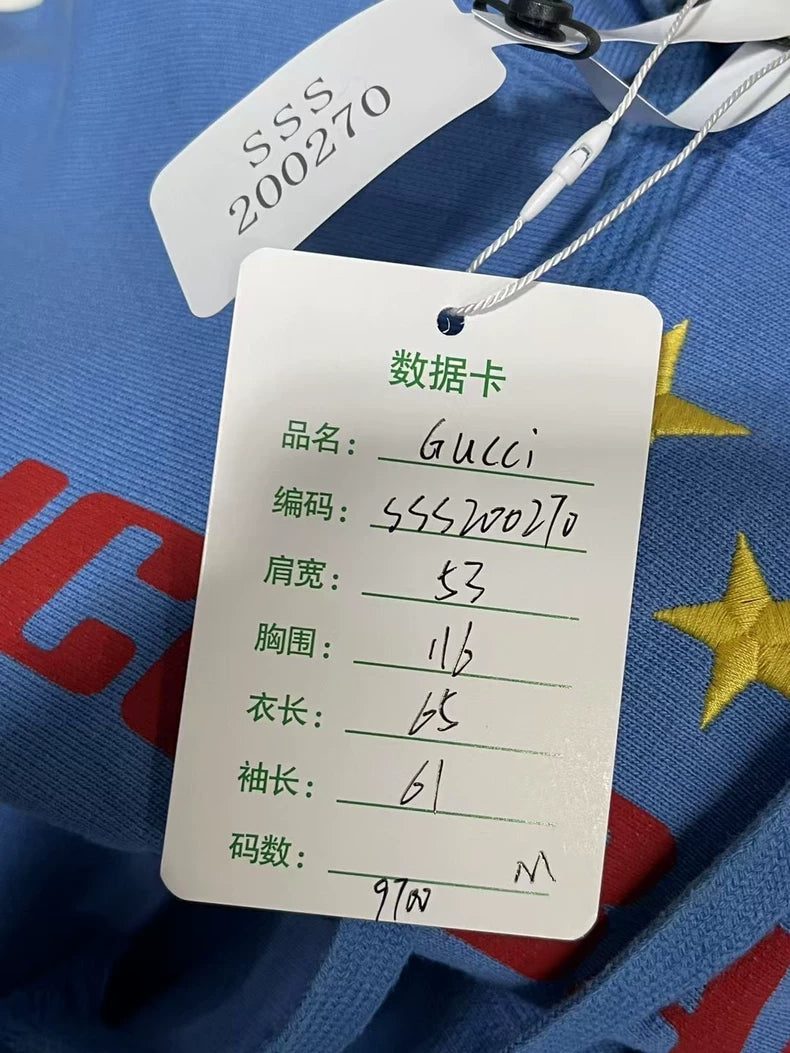 SSS
200270
数据卡
品名: Gucci
编码: SSS200270
肩宽: 53
胸围: 116
衣长: 65
袖长: 61
码数: M
9700